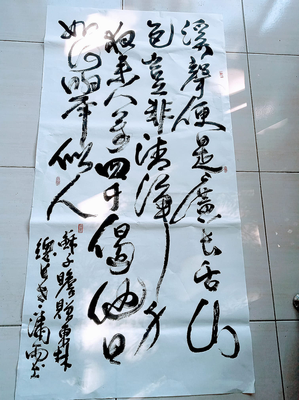 溪聲便是廣長舌山
色豈非清淨身
夜来八萬四千偈他日
如何舉似人
蘇子瞻贈東林
總長老雨书